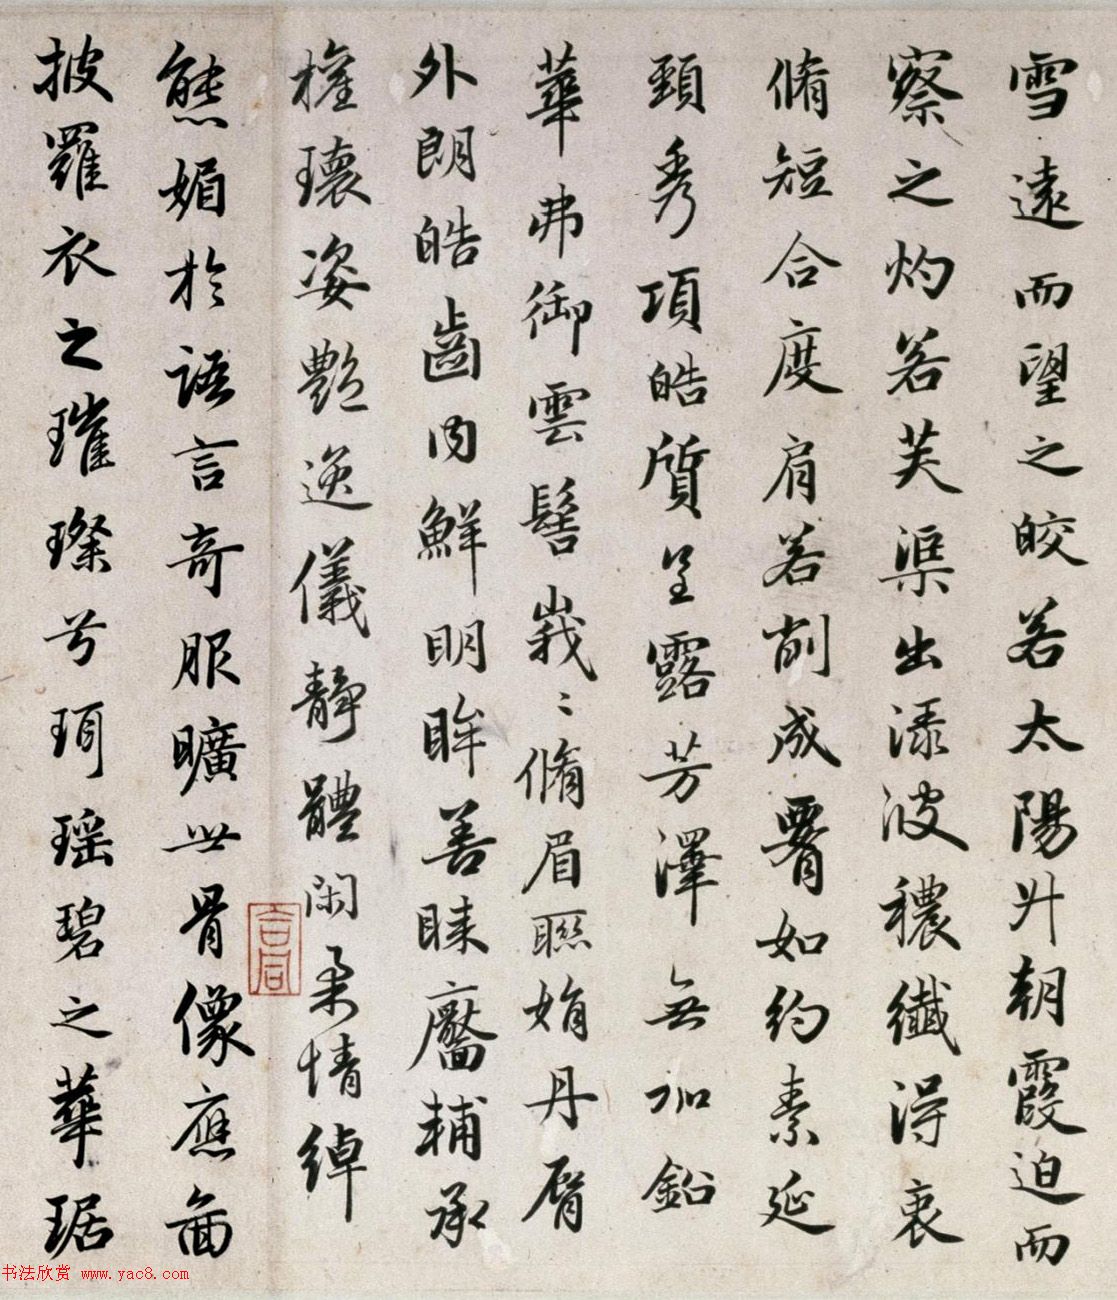 雪遠而望之皎若太陽升朝霞迫而
察之灼若芙渠出渌波穠纖得衷
脩短合度肩若削成䙅如約素延
頸秀項皓質呈露芳澤無加鉛
華弗御雲髻峩〻脩眉聯娟丹脣
外朗皓齒内鮮明眸善睞靨輔承
權瓌姿艷逸儀靜體閑柔情綽
態媚於語言奇服曠世骨像應啚
披羅衣之璀璨兮珥瑶碧之華琚
书法欣赏 www.yac8.com